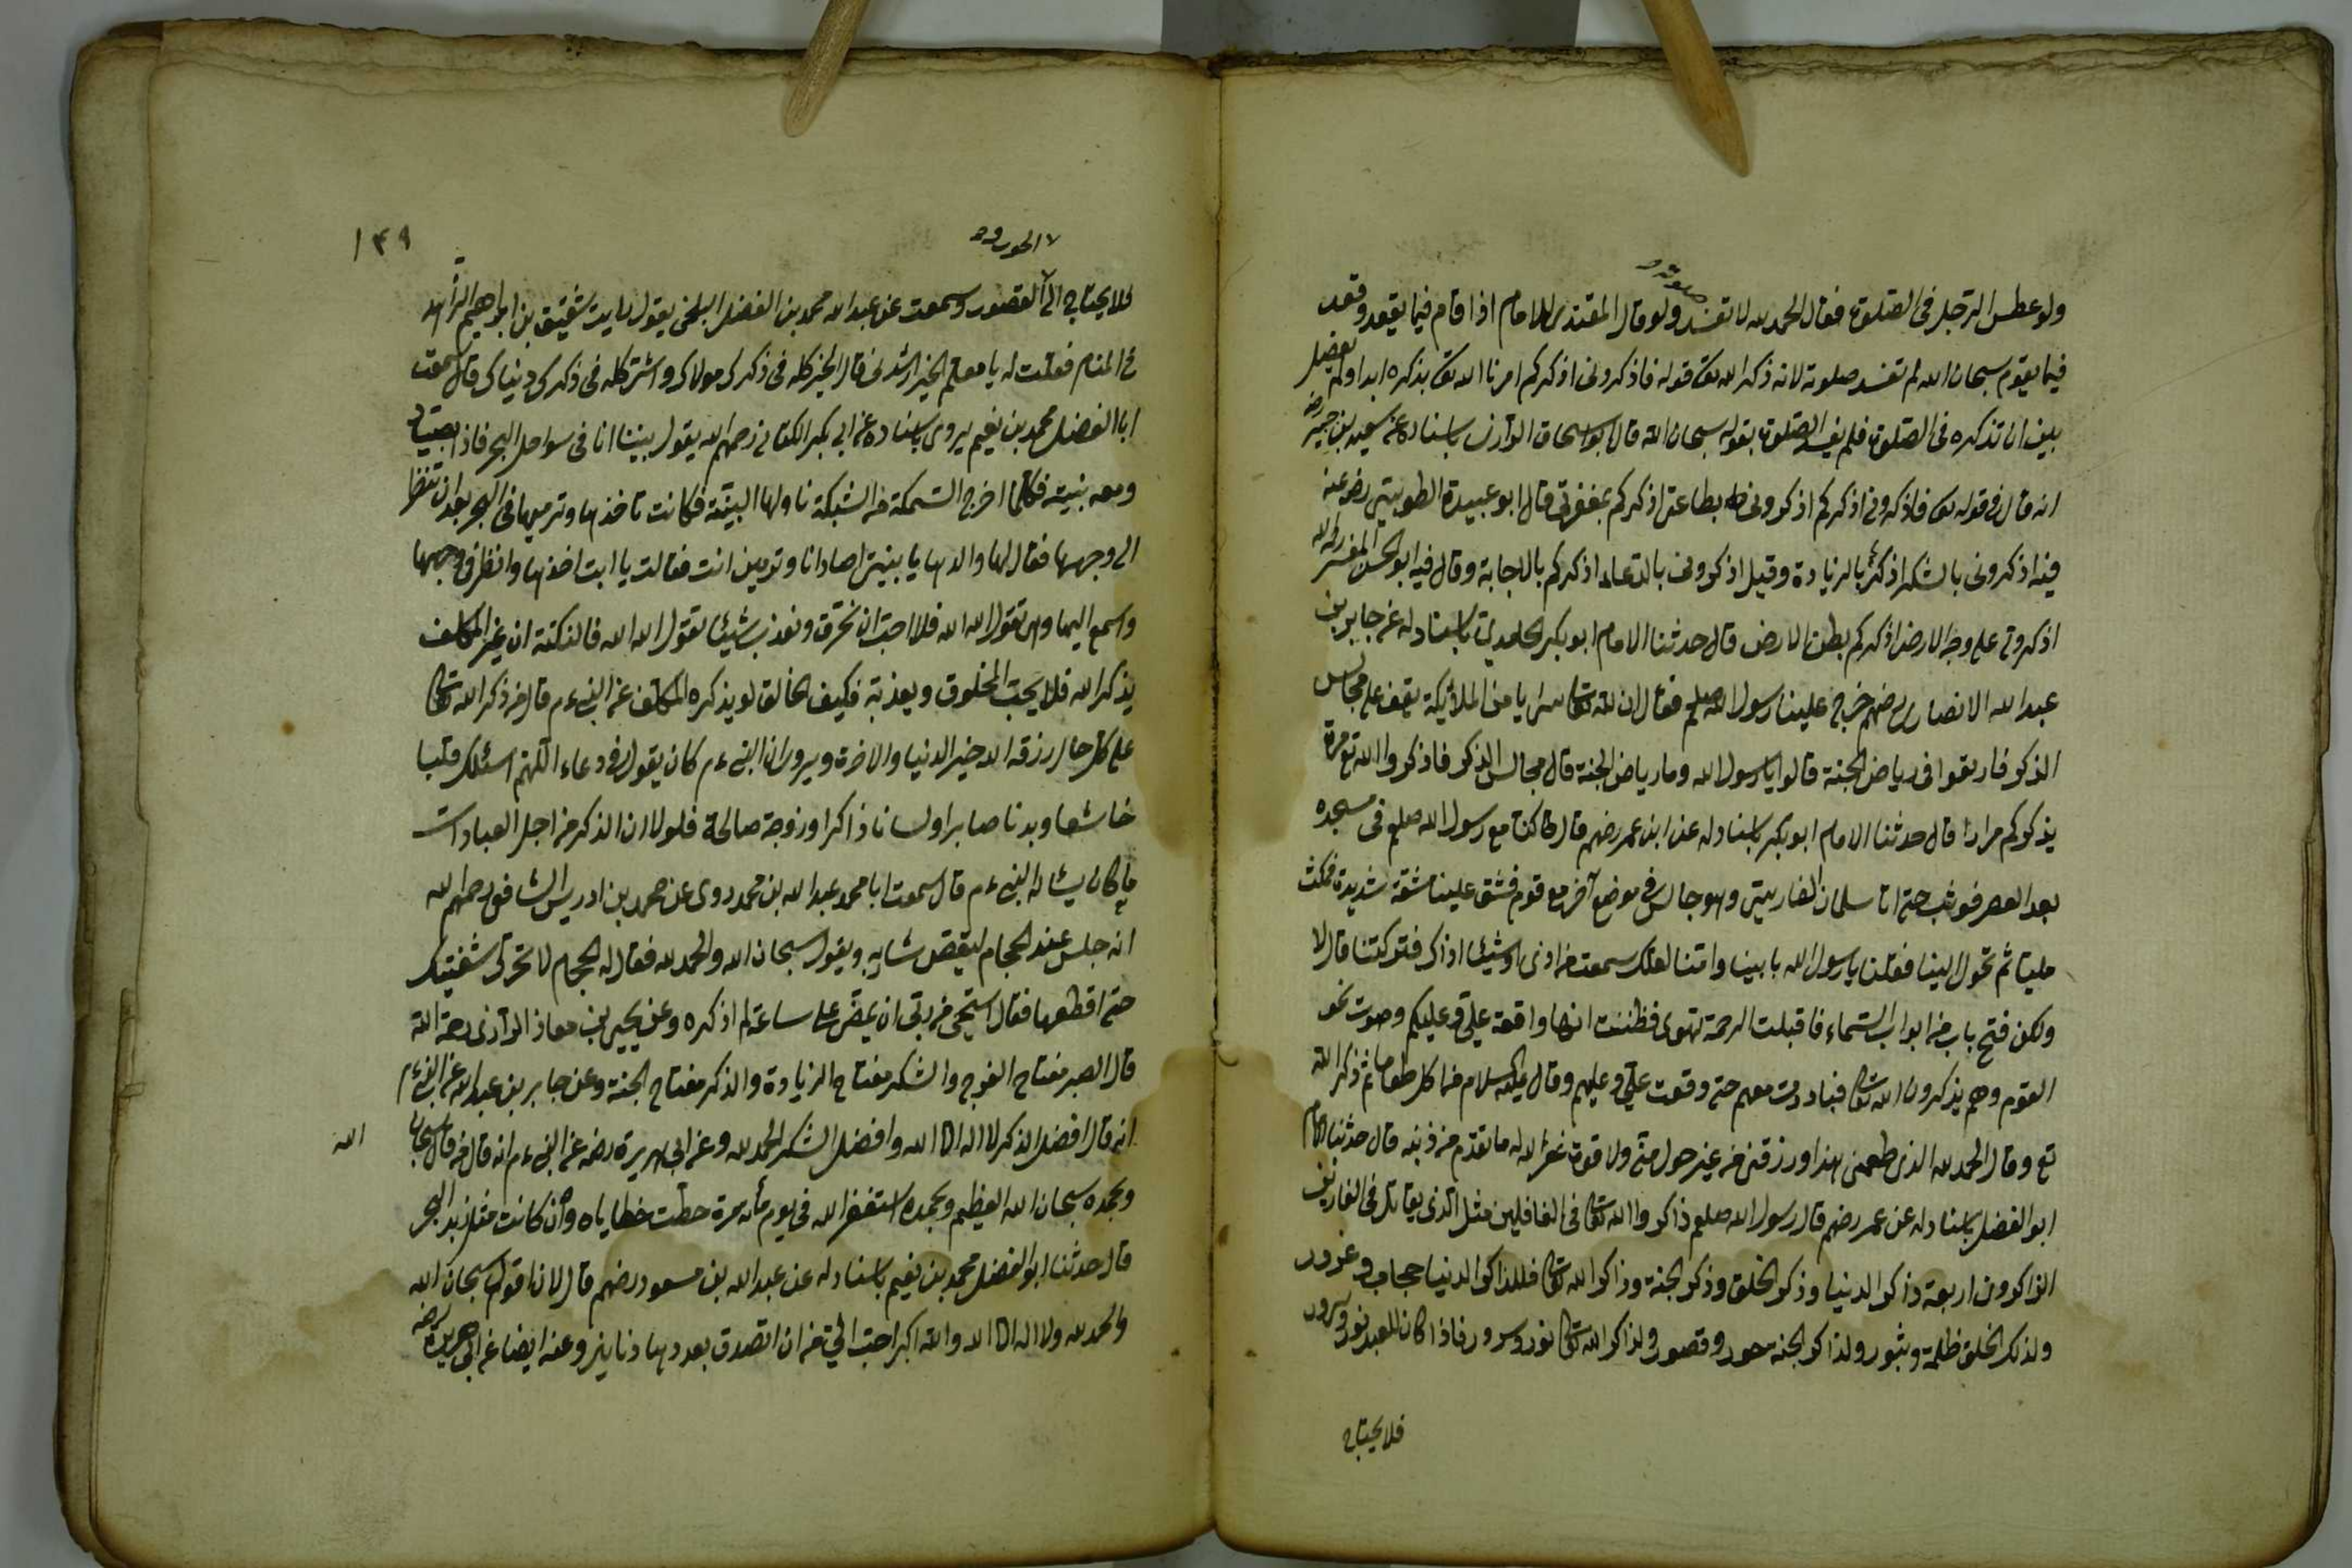 صلوته
ولو عطس الرجل فى الصلوة فقال الحمد لله لا تفسد ولو قال المقتدى للامام اذا قام فيما يقعد وقعد
فيما يقوم سبحان الله لم تفسد صلوته لانه ذكر الله تع قوله فاذكرونى اذكركم امرنا الله تع بذكره ابدا ولم يفصل
بين ان تذكره فى الصلوة فلم يفسد الصلوة بقوله سبحان الله قال ابو اسحاق الوازن باسناده عن سعيد بن جبير رضه
انه قال فى قوله تع فاذكرونى اذكركم اذكرونى بطاعتى اذكركم بمغفرتى قال ابو عبيدة رضى عنه
فيه اذكرونى بالشكر اذكركم بالزيادة وقيل اذكرونى بالدعاء اذكركم بالاجابة وقال فيه ابو الحسن المفسر رحمه الله
اذكرونى على وجه الارض اذكركم بطن الارض قال حدثنا الامام ابو بكر باسناد له عن جابر بن
عبد الله الانصارى رضهم خرج علينا رسول الله صلعم فقال ان لله تعالى سرايا من الملائكة تقف على مجالس
الذكر فارتعوا فى رياض الجنة قالوا يا رسول الله وما رياض الجنة قال مجالس الذكر فاذكروا الله تع مرة
يذكركم مرارا قال حدثنا الامام ابو بكر باسناد له عن ابن عمر رضهم قال كنا مع رسول الله صلعم فى مسجده
بعد العصر فوثب حتى اتا سلمان الفارسى وهو جالس فى موضع آخر مع قوم فشق علينا مشقة شديدة فمكث
مليا ثم تحول الينا فقلنا يا رسول الله بابينا وامنا لعلك سمعت من اذى او شيئا اذاك فتركتنا قال لا
ولكن فتح باب من ابواب السماء فاقبلت الرحمة تهوى فظننت انها واقعة علىّ وعليكم وصوت نحو
القوم وهم يذكرون الله تعالى فبادرت معهم حتى وقعت علىّ وعليهم وقال عليه السلام من اكل طعاما ثم ذكر الله
تع وقال الحمد لله الذى طعمنى هذا ورزقنى من غير حول منى ولا قوة غفر الله له ما تقدم من ذنبه قال حدثنا الامام
ابو الفضل باسناد له عن عمر رضهم قال رسول الله صلعم ذاكروا الله تعالى فى الغافلين مثل الذى يقاتل فى الفارين
الذاكرون اربعة ذاكر الدنيا وذكر الخلق وذكر الجنة وذاكر الله تعالى فللذاكر الدنيا حجاب وغرور
ولذكر الخلق ظلمة وثبور ولذاكر الجنة حور وقصور ولذاكر الله تعالى نور وسرور فاذا كان للعبد نور وسرور
فلا يحتاج
١٤٩
الحور و
فلا يحتاج الى القصور وسمعت عن عبد الله محمد بن الفضل البلخى يقول رايت شقيق بن ابراهيم الزاهد
فى المنام فقلت له يا معلم الخير ارشدنى قال الخير كله فى ذكرك مولاك والشر كله فى ذكرك دنياك قال سمعت
ابا الفضل محمد بن نعيم يروى باسناده عن ابى بكر الكتانى رحمهم الله يقول بينا انا فى سواحل البحر فاذا بصياد
ومعه بنيته فكلما اخرج السمكة من الشبكة ناولها البنية فكانت تاخذها وترميها فى البحر بعد ان تنظر
الى وجهها فقال لها والدها يا بنيتى اصاد انا وترمين انت فقالت يا ابت اخذها وانظر فى وجهها
واسمع اليها وهى تقول الله الله فلا احب ان نحترق ونعذب شيئا تقول الله الله فالنكتة ان غير المكلف
يذكر الله فلا يحب المخلوق ويعذبه فكيف الخالق لو يذكره المكلف عن النبى ءم قال من ذكر الله تعالى
على كل حال رزقه الله خير الدنيا والاخرة ويروى ان النبى ءم كان يقول فى دعاء اللهم اسئلك قلبا
خاشعا وبدنا صابرا ولسانا ذاكرا وزوجة صالحة فلولا ان الذكر من اجل العبادات
ما كان يسئاله النبى ءم قال سمعت ابا محمد عبد الله بن محمد روى عن محمد بن ادريس الشافعى رحمهم الله
انه جلس عند الحجام ليقص شاربه ويقول سبحان الله والحمد لله فقال له الحجام لا تحرك شفتيك
حتى اقطعها فقال استحى من ربى ان يمضى على ساعة لم اذكره وعن يحيى بن معاذ الرازى رحمه الله
قال الصبر مفتاح الفرج والشكر مفتاح الزيادة والذكر مفتاح الجنة وعن جابر بن عبد الله عن النبى ءم
انه قال افضل الذكر لا اله الا الله وافضل الشكر الحمد لله وعن ابى هريرة رضه عن النبى ءم انه قال من قال سبحان
الله
وبحمده سبحان الله العظيم وبحمده استغفر الله فى يوم مأته مرة حطت خطاياه وان كانت مثل زبد البحر
قال حدثنا ابو الفضل محمد بن نعيم باسناد له عن عبد الله بن مسعود رضهم قال لان اقول سبحان الله
والحمد لله ولا اله الا الله والله اكبر احب الى من ان اتصدق بعددها دنانير وعنه ايضا عن ابى هريرة رضه